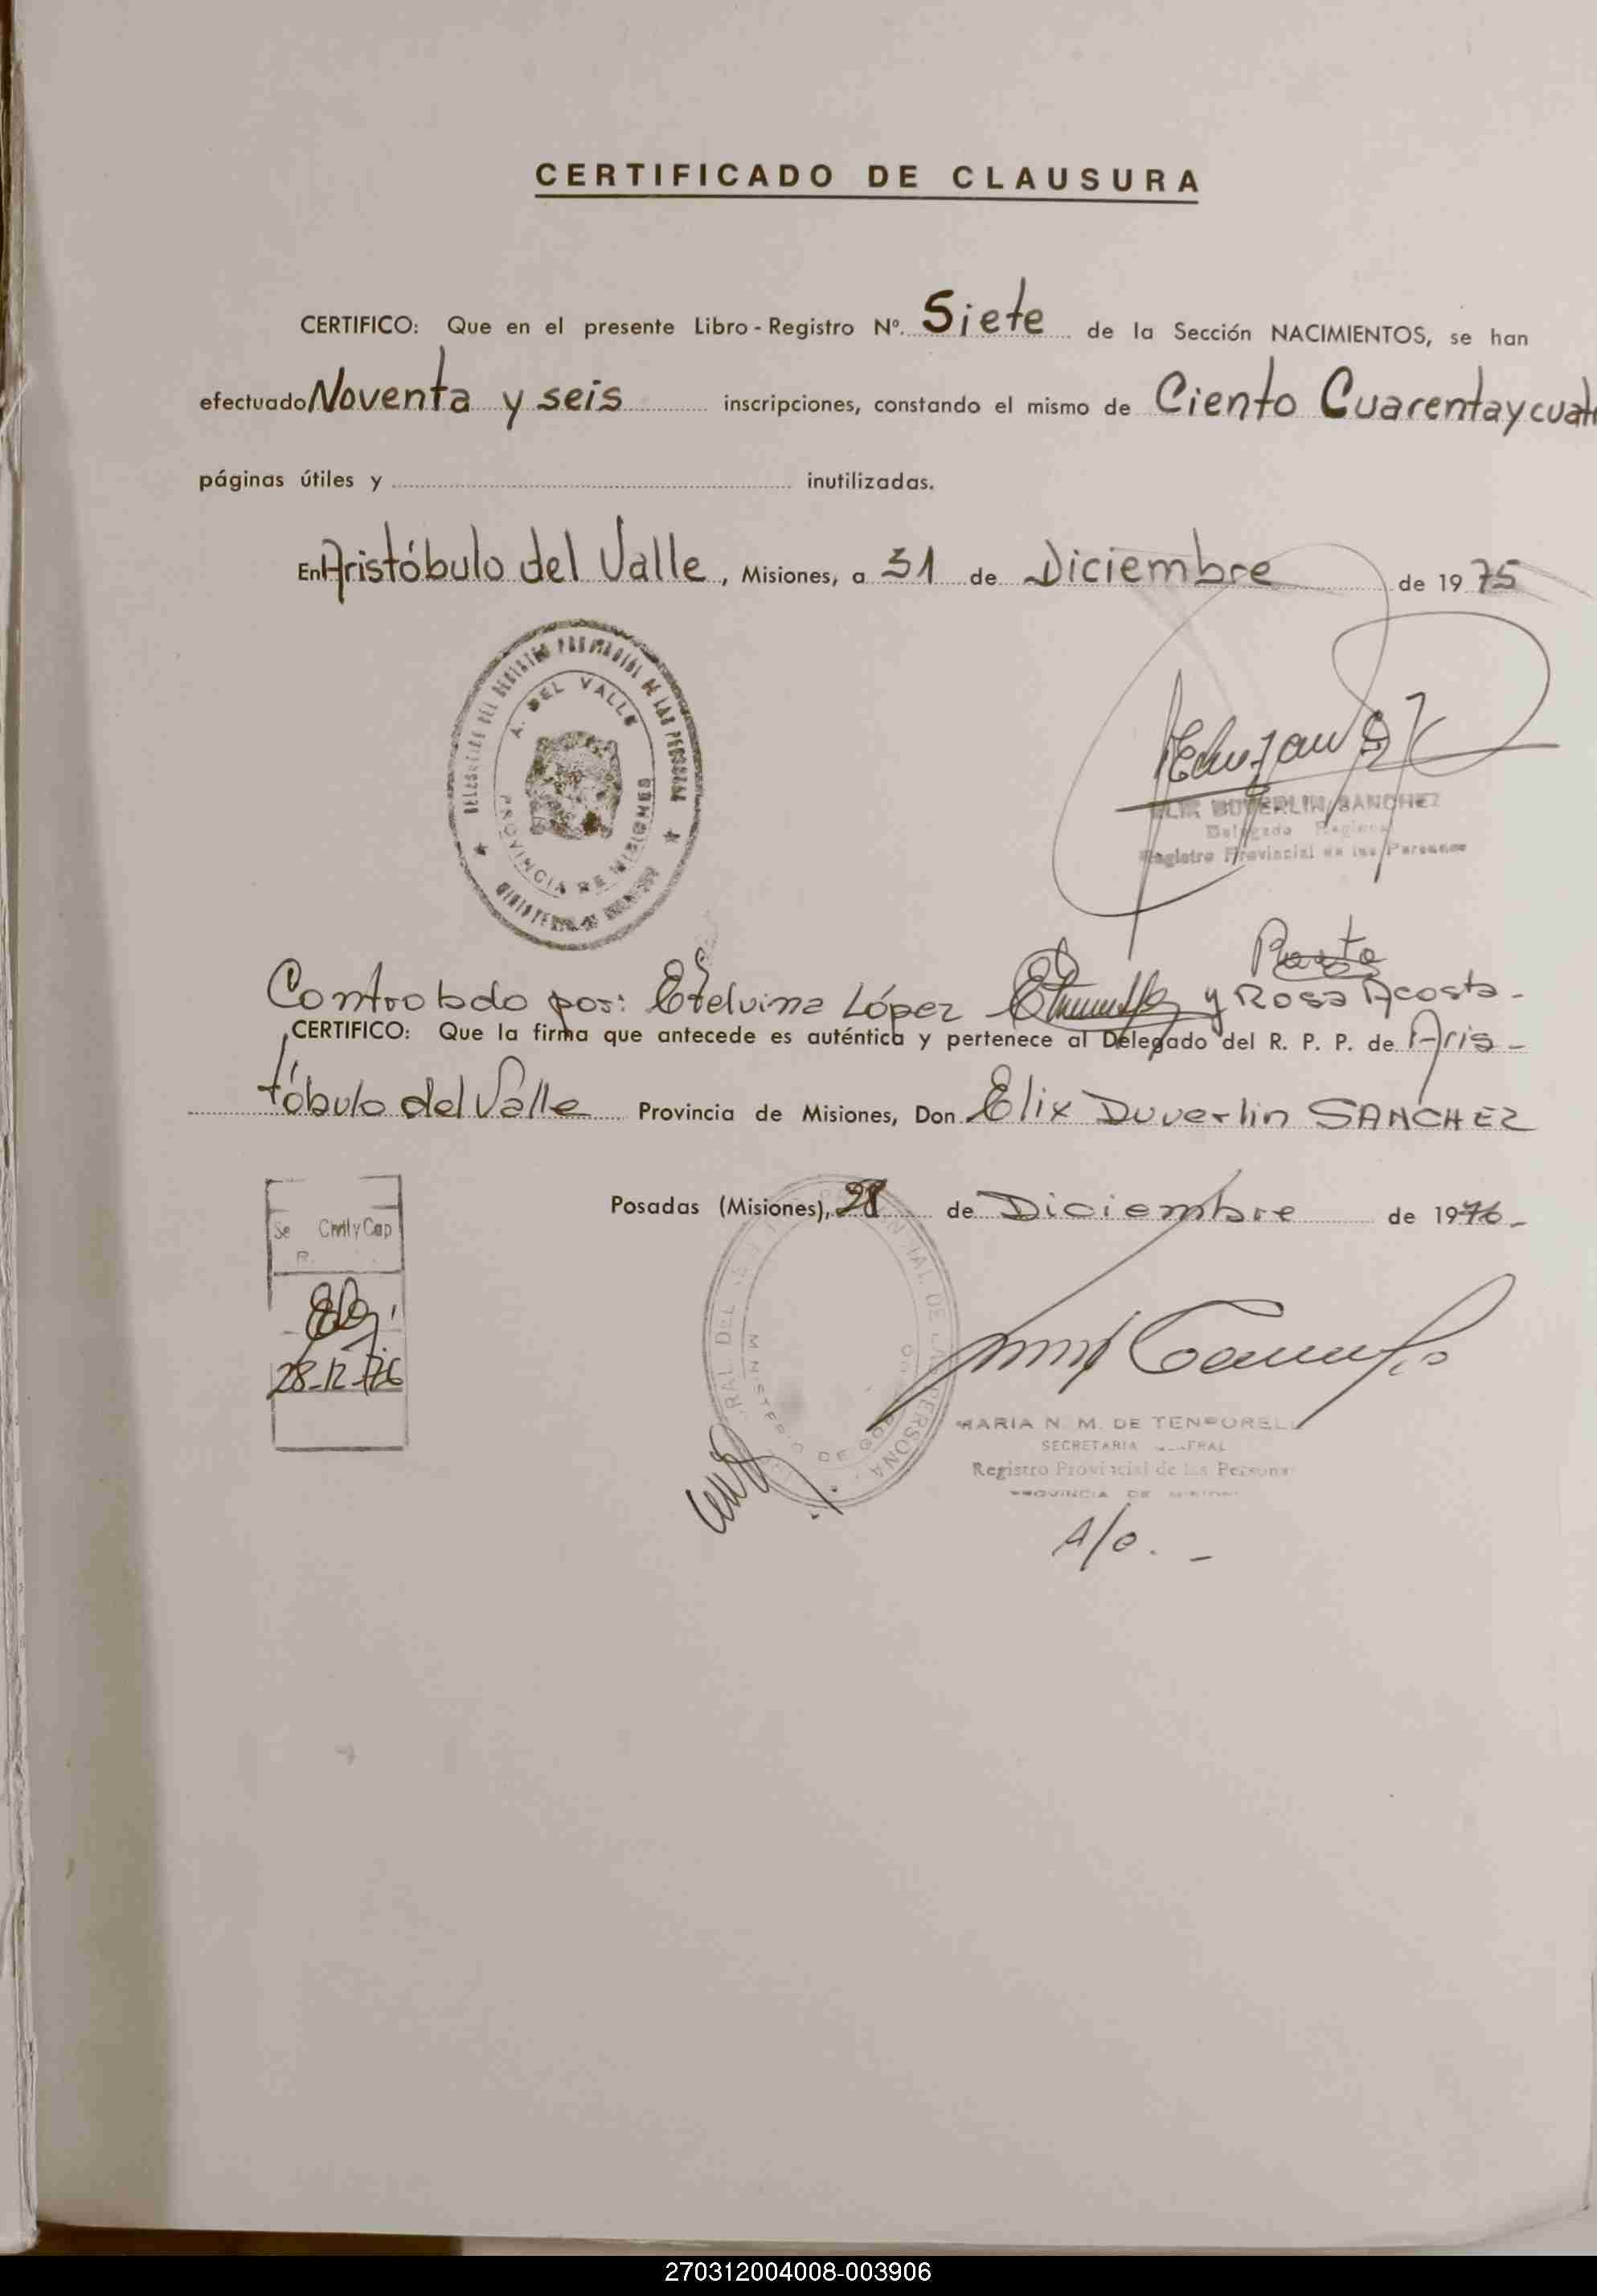 CERTIFICADO DE CLAUSURA
CERTIFICO: Que en el presente Libro - Registro Nº. Siete de la Sección NACIMIENTOS, se han
efectuado Noventa y seis inscripciones, constando el mismo de Ciento Cuarentaycuat
páginas útiles y inutilizadas.
En Aristóbulo del Valle, Misiones, a 31 de Diciembre de 1975
A. DEL VALLE
PROVINCIA DE MISIONES
DUVERLIN SANCHEZ
Delegado Regional
Registro Provincial de las Personas
Controlado por: Etelvina López y Rosa Acosta -
CERTIFICO: Que la firma que antecede es auténtica y pertenece al Delegado del R. P. P. de Aris -
tóbulo del Valle Provincia de Misiones, Don Elix Duverlin SANCHEZ
Posadas (Misiones), 28 de Diciembre de 1976 -
28-12-76
MARIA N. M. DE
SECRETARIA
Registro Provincial de las Personas
PROVINCIA DE
A/O. -
270312004008-003906